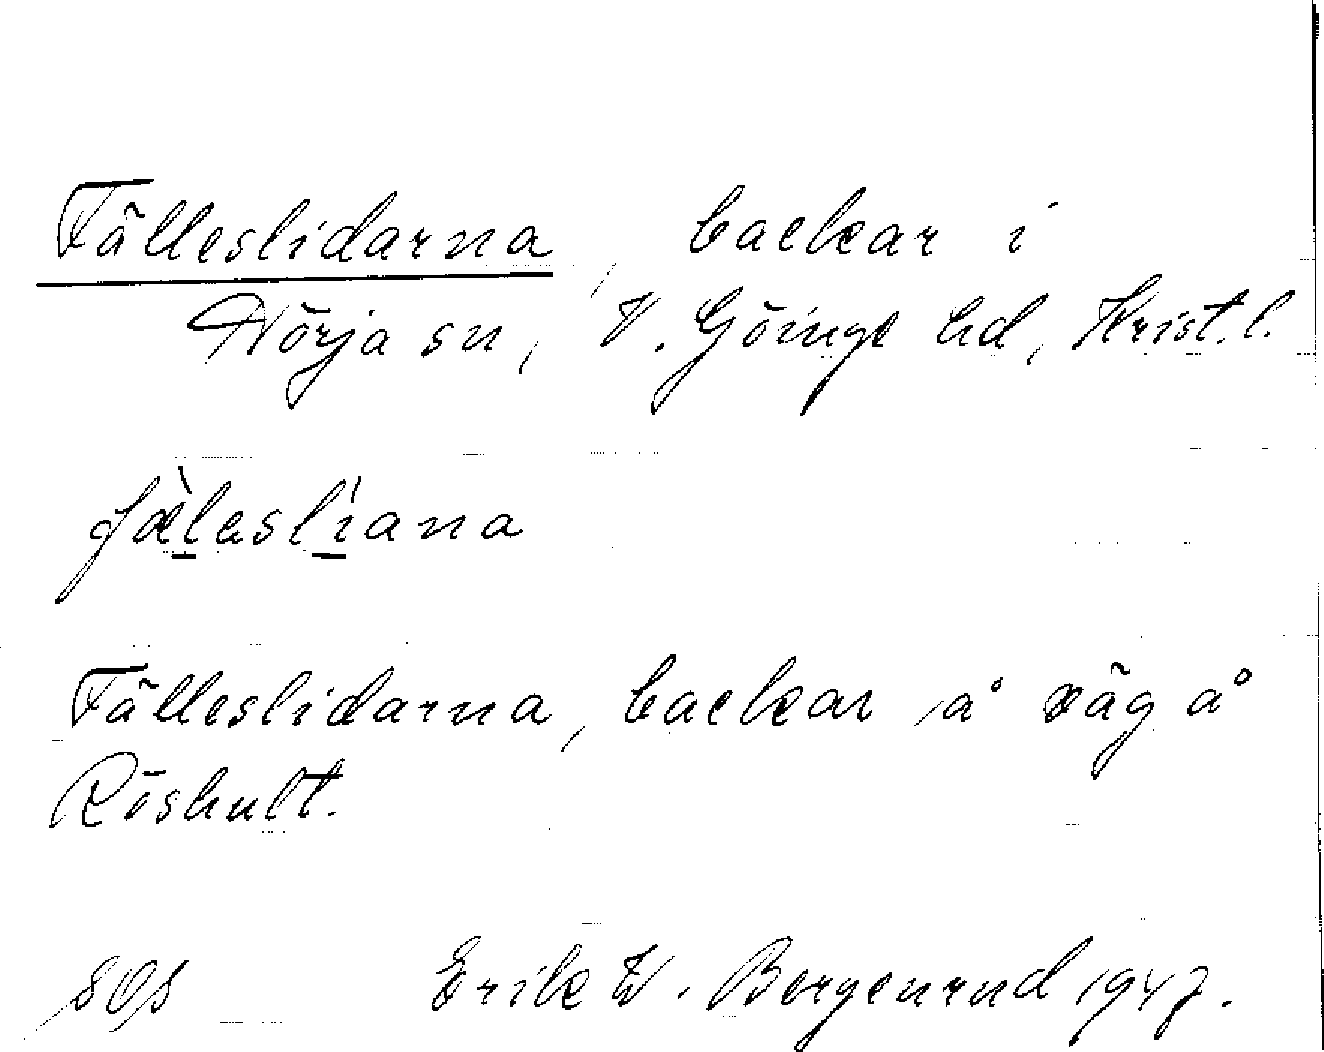 Fälleslidarna, backar i
Nörja sn, V. Göinge hd, Krist. l.
fæ̀lesli̍ana
Fälleslidarna, backar å väg å
Röshult.
SOS Erik W. Bergenrud 1947.